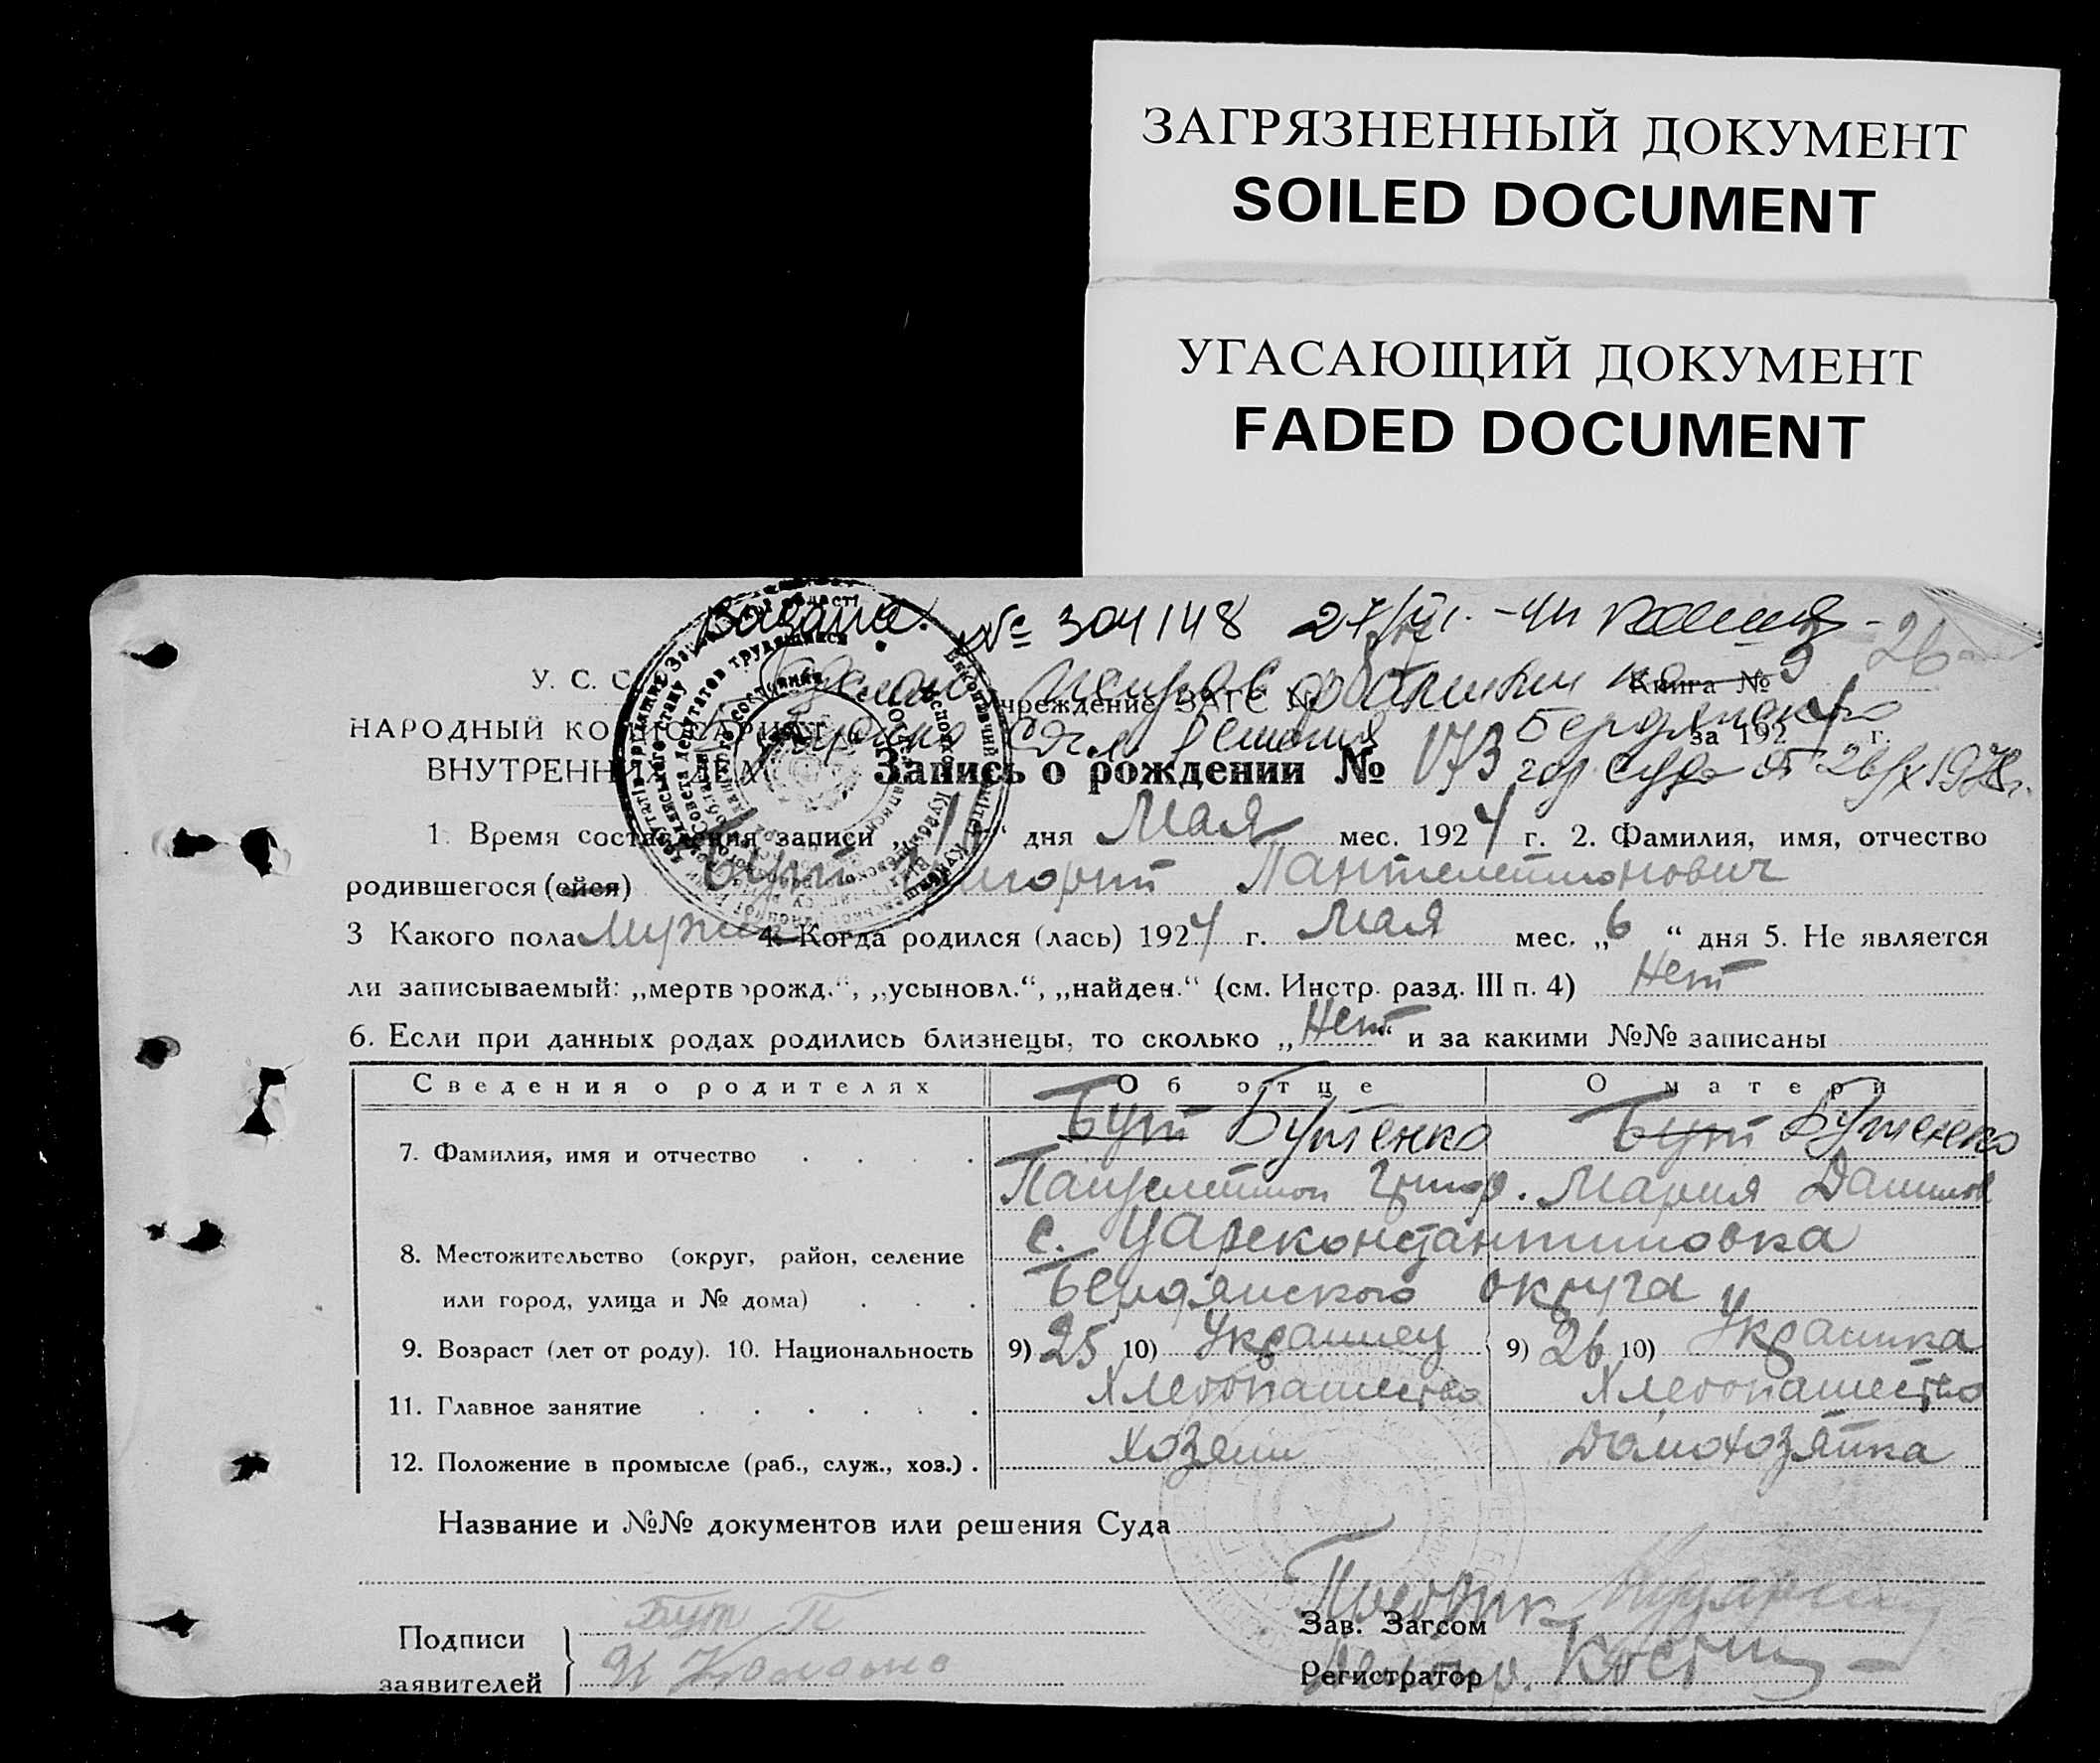 ЗАГРЯЗНЕННЫЙ ДОКУМЕНТ
SOILED DOCUMENT
УГАСАЮЩИЙ ДОКУМЕНТ
FADED DOCUMENT
№ 304148 27/
У. С. С.
Учреждение ЗАГС № Книга № 26
НАРОДНЫЙ за 1924 г.
ВНУТРЕННИХ
Запись о рождении № 173 гор. суда от 26/X 1978г.
1. Время составления записи „ “ дня Мая мес. 1924 г. 2. Фамилия, имя, отчество
родившегося (ейся) Бут Григорий Пантелеймонович
3 Какого пола Мужс 4. Когда родился (лась) 1924 г. Мая мес. „6 “ дня 5. Не является
ли записываемый: „мертворожд.“, „усыновл.“, „найден.“ (см. Инстр. разд. III п. 4) Нет
6. Если при данных родах родились близнецы, то сколько „Нет“ и за какими №№ записаны
Сведения о родителях Об отце О матери
7. Фамилия, имя и отчество Бут Бутенко Бут Бутенко
Пантелеймон Григор. Мария Данилов
8. Местожительство (округ, район, селение с. Цареконстантиновка
или город, улица и № дома) Бердянского округа
9. Возраст (лет от роду). 10. Национальность 9) 25 10) Украинец 9) 26 10) Украинка
11. Главное занятие Хлебопашество Хлебопашество
12. Положение в промысле (раб., служ., хоз.) Хозяин Домохозяйка
Название и №№ документов или решения Суда
Подписи Бут П Зав. Загсом
заявителей Регистратор